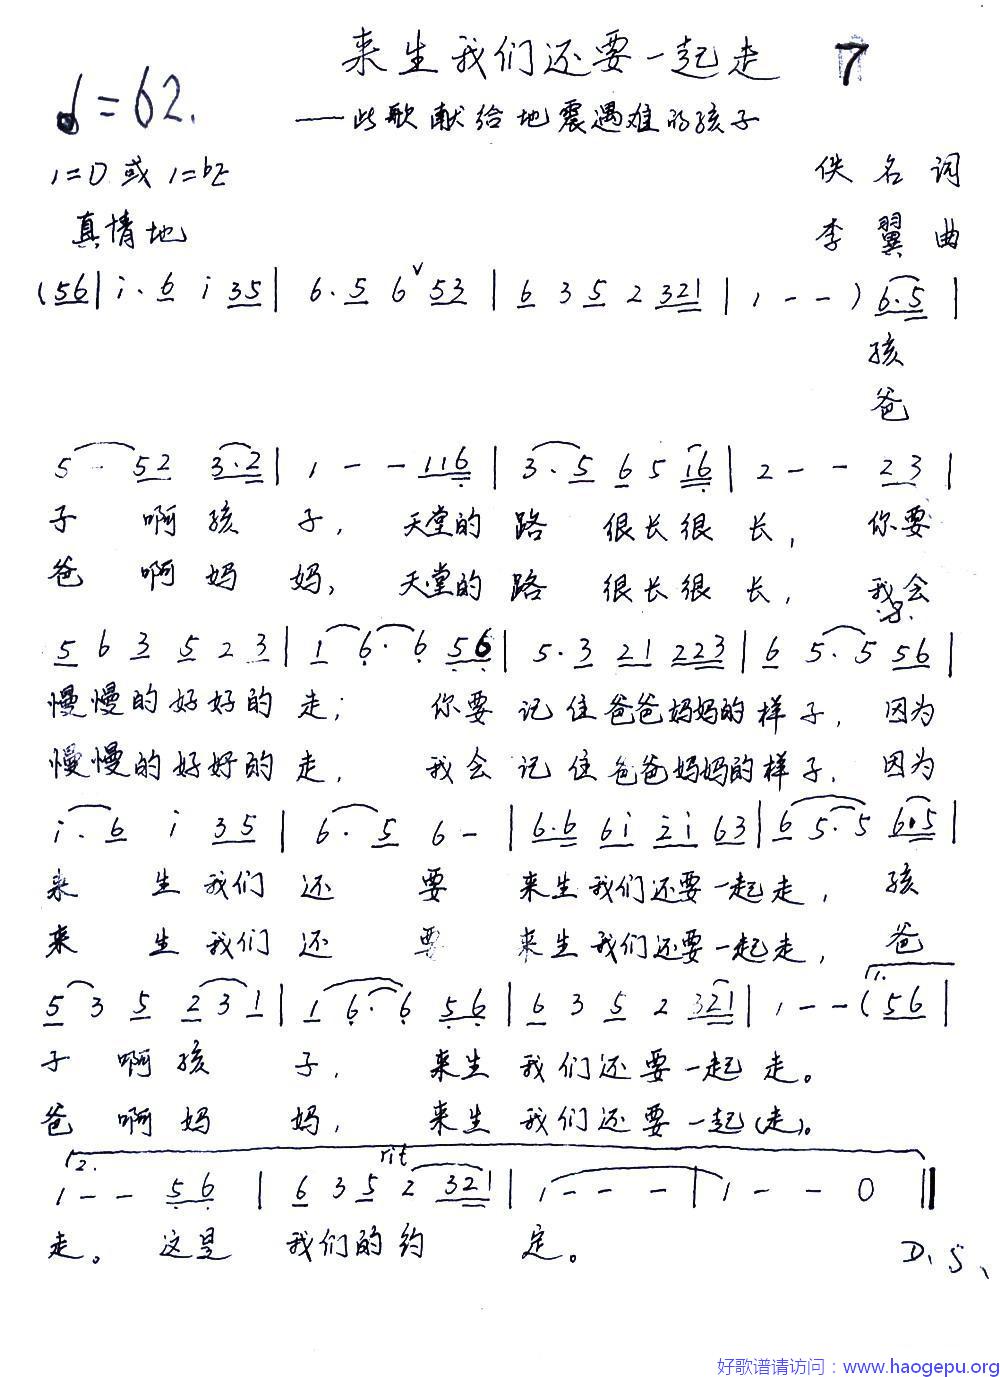 来生我们还要一起走 7
♩=62.
——此歌献给地震遇难的孩子
1=D 或 1=bE
佚名词
真情地
李翼曲
(56| i·6 i 35| 6·5 6 ∨ 53 | 6 3 5 2 321 | 1 - - ) 6·5 |
孩
爸
5 - 52 3·2 | 1 - - 116 | 3·5 6 5 16 | 2 - - 23 |
子 啊孩 子, 天堂的 路 很长很 长, 你要
爸 啊妈 妈, 天堂的 路 很长很 长, 我会
5 6 3 5 2 3 | 1 6· 6 56 | 5·3 21 223 | 6 5·5 56 |
慢慢的好好的 走; 你要 记住爸爸妈妈的样子, 因为
慢慢的好好的 走, 我会 记住爸爸妈妈的样子, 因为
i·6 i 35 | 6·5 6 - | 6·6 6i 2i 63 | 6 5·5 6·5 |
来 生我们 还 要 来生我们还要一起走, 孩
来 生我们 还 要 来生我们还要一起走, 爸
1.
5 3 5 2 3 1 | 1 6· 6 56 | 6 3 5 2 321 | 1 - - (56 |
子 啊孩 子, 来生 我们还要一起 走。
爸 啊妈 妈, 来生 我们还要一起(走)。
2. rit
1 - - 56 | 6 3 5 2 321 | 1 - - - | 1 - - 0 ‖
走。 这是 我们的约 定。
D、S、
好歌谱请访问：www.haogepu.org